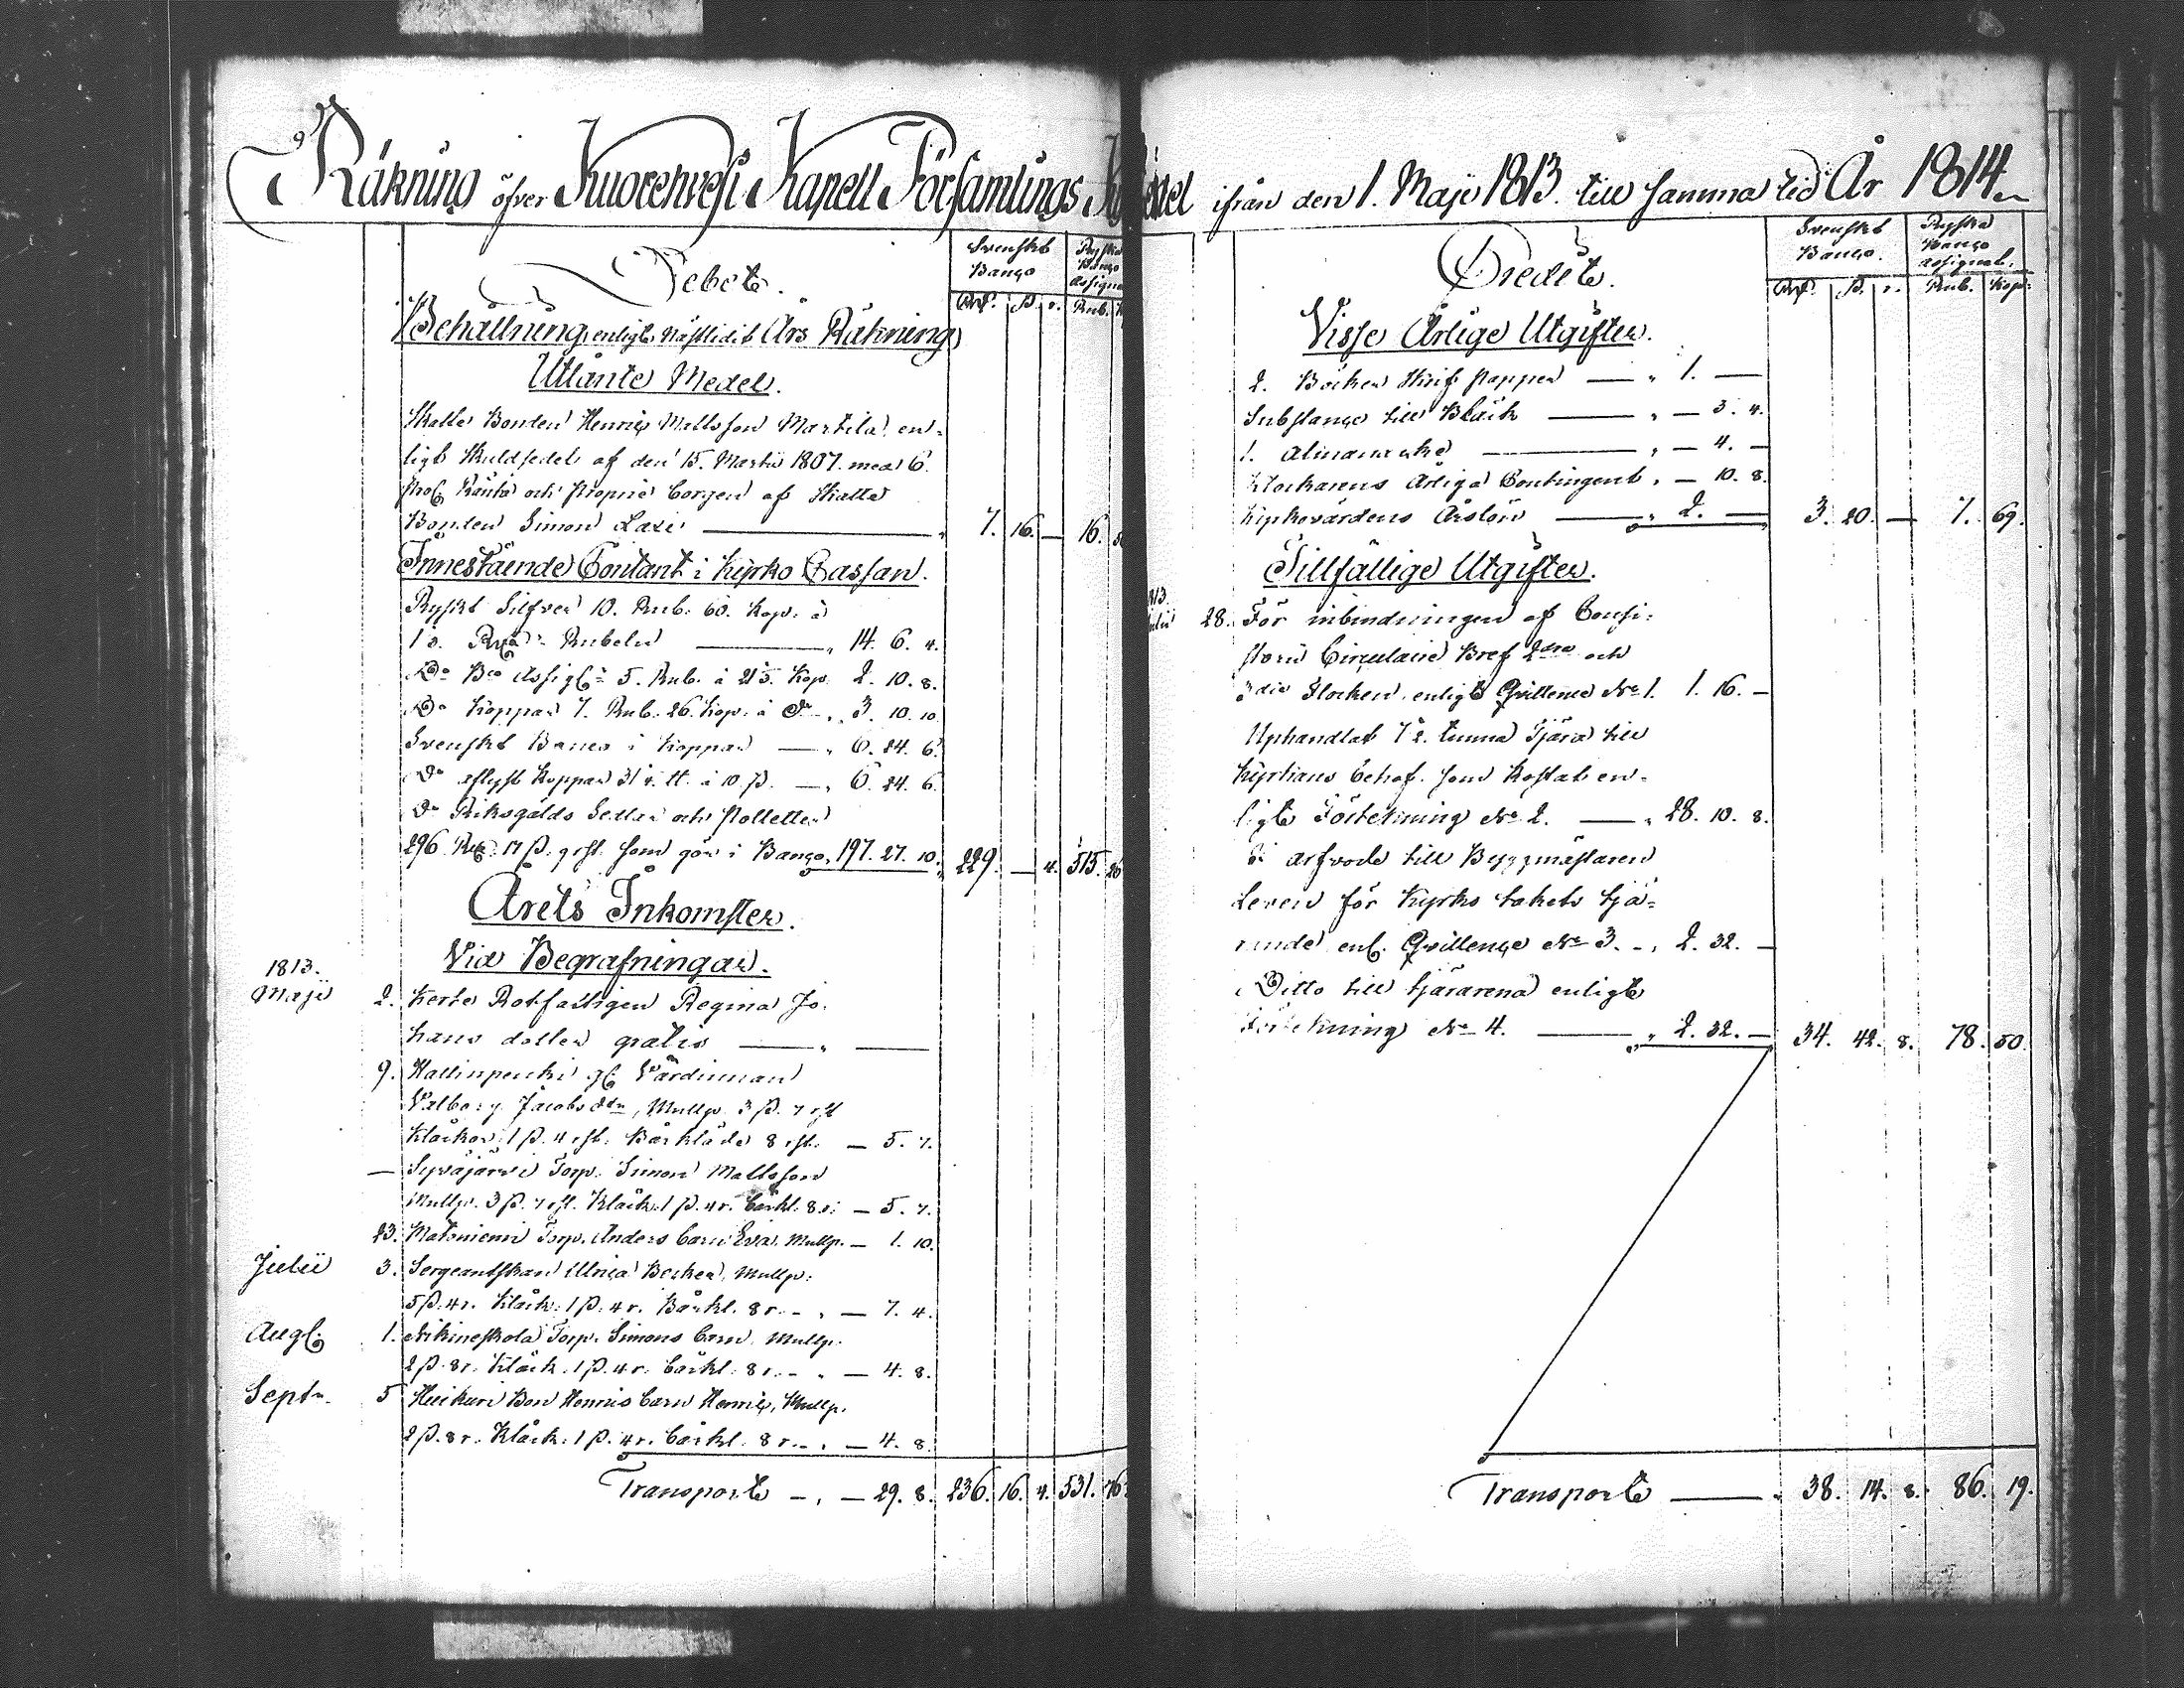 Räkning öfver Kuorehvesi Kapell Församlings
Debet.
Svenskt Banco
Rub.
Behållning enligt nästledit Års Räkning
Utlånte Medel.
Skatte Bonden Henric Mattsson Martila, en-
ligt Skuldsedel af den 15. Martii 1807. med 6.
proC. Ränta och proprie borgen af Skatte
Bonden Simon Lari — 7. 16. — 16.
Innestående Contant i Kyrko Cassan.
Ryskt Silfver 10. Rub. 60. Kop. à
Rubeln — 14. 6. 4.
Do Bco Assig 5. Rub. à 215. Kop. 2. 10. 8.
Do Koppar 7. Rub. 26. Kop. à do „ 3. 10. 10.
Svenskt Banco i Koppar — „ 6. 24. 6.
Koppar à 10 ß. — „ 6. 24. 6.
Do Riksgälds Sedlar och Polletter
296 Rd. 17 ß. 9 rst. som gör i Banco, 197. 27. 10. 229. — 4. 515. 26
Årets Inkomster.
Via Begrafningar.
1813.
Maji 2. Rotfattigen Regina Jo-
hans dotter gratis — „ —
9. Hallinpenki
Valborg Jacobsdtr, Mullp. 3 ß. 7 rst
Klåckor 1 ß. 4 rst. Bårkläde 8 rst. — 5. 7.
— Syväjärvi Torp. Simon Mattsson
Mullp. 3 ß. 7 rst. Klåck. 1 ß. 4 r. bårkl. 8 r. — 5. 7.
23. Matoniemi Torp. Anders barn Eva, Mullp. — 1. 10.
Julii 3. Sergeantskan Ulrica Becker, Mullp.
5 ß. 4 r. Klåck. 1 ß. 4 r. Bårkl. 8 r. — „ — 7. 4.
Aug. 1. Torp. Simons barn, Mullp.
2 ß. 8 r. Klåck. 1 ß. 4 r. bårkl. 8 r. — „ — 4. 8.
Septr. 5 Heikuri Bon Henrics barn Henric, Mullp.
2 ß. 8 r. Klåck. 1 ß. 4 r. bårkl. 8 r. — „ — 4. 8.
Transport — „ — 29. 8. 236. 16. 4. 531. 76.
ifrån den 1. Maji 1813. till samma tid År 1814.
Credit.
Svenskt Banco.
Ryska Banco Assignat.
ß. r. Rub. Kop.
Visse Årlige Utgifter.
2. Böcker Skrif papper — „ 1. —
Substance till Bläck — „ — 3. 4.
1. Almanacka — „ — 4. —
Klockarens Årliga Contingent „ — 10. 8.
Kyrkovärdens Årslön — „ 2. — 3. 20. — 7. 69.
Tillfällige Utgifter.
28. För inbindningen af Consi-
storii Circulaire Bref 2dra och
3die Flocken, enligt Qvittence No 1. 1. 16. —
Uphandlat tunna Tjära till
Kyrkans behof. som kostat en-
ligt Förtekning No 2. — „ 28. 10. 8.
I arfvode till Byggmästaren
för Kyrko takets tjä-
rande enl. Qvittence No 3. — „ 2. 32. —
Ditto till tjärarena enligt
Förtekning No 4. — „ 2. 32. — 34. 42. 8. 78. 50.
Transport — „ 38. 14. 8. 86. 19.